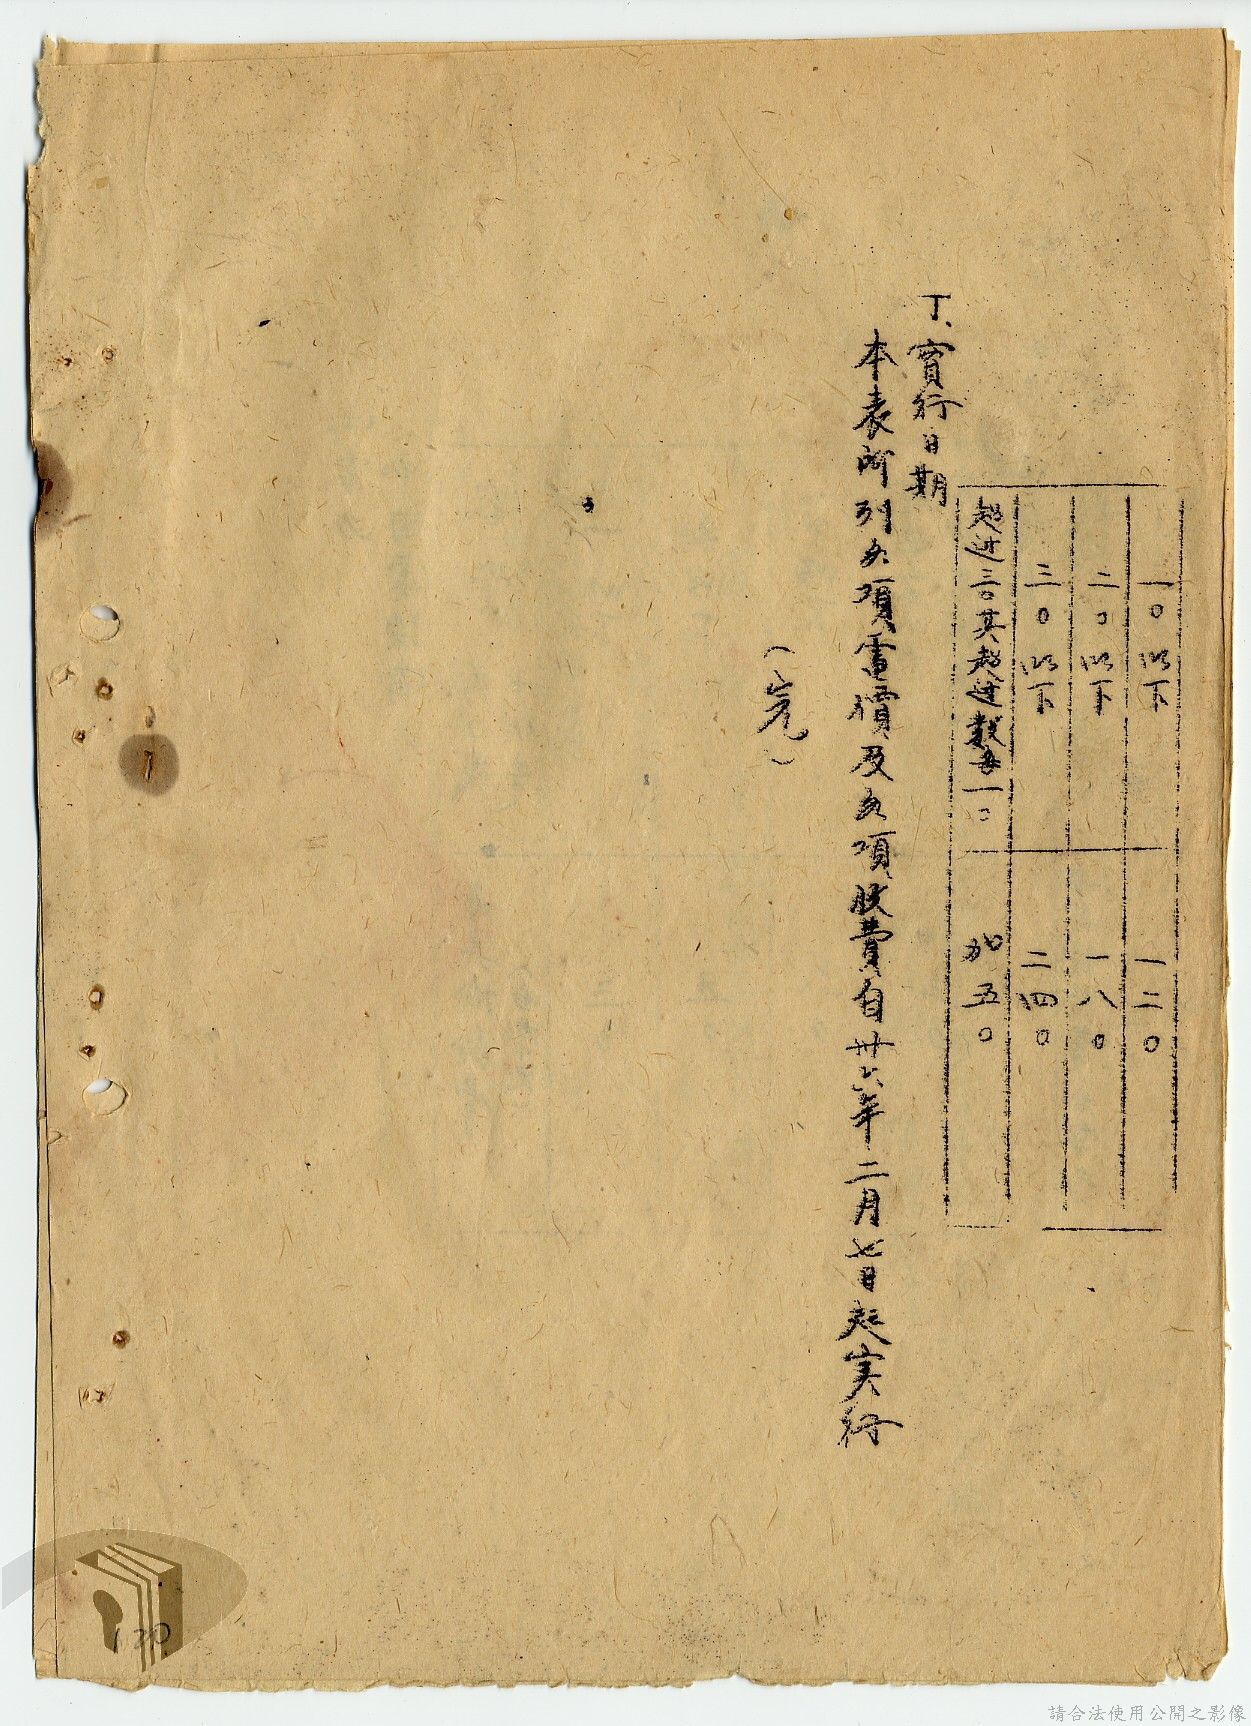 一〇以下 一二〇
二〇以下 一八〇
三〇以下 二四〇
超过三〇其超过数每一〇 加五〇
丁、實行日期
本表所列各項電價及各項收費自卅六年二月七日起实行
(完)
130
請合法使用公開之影像